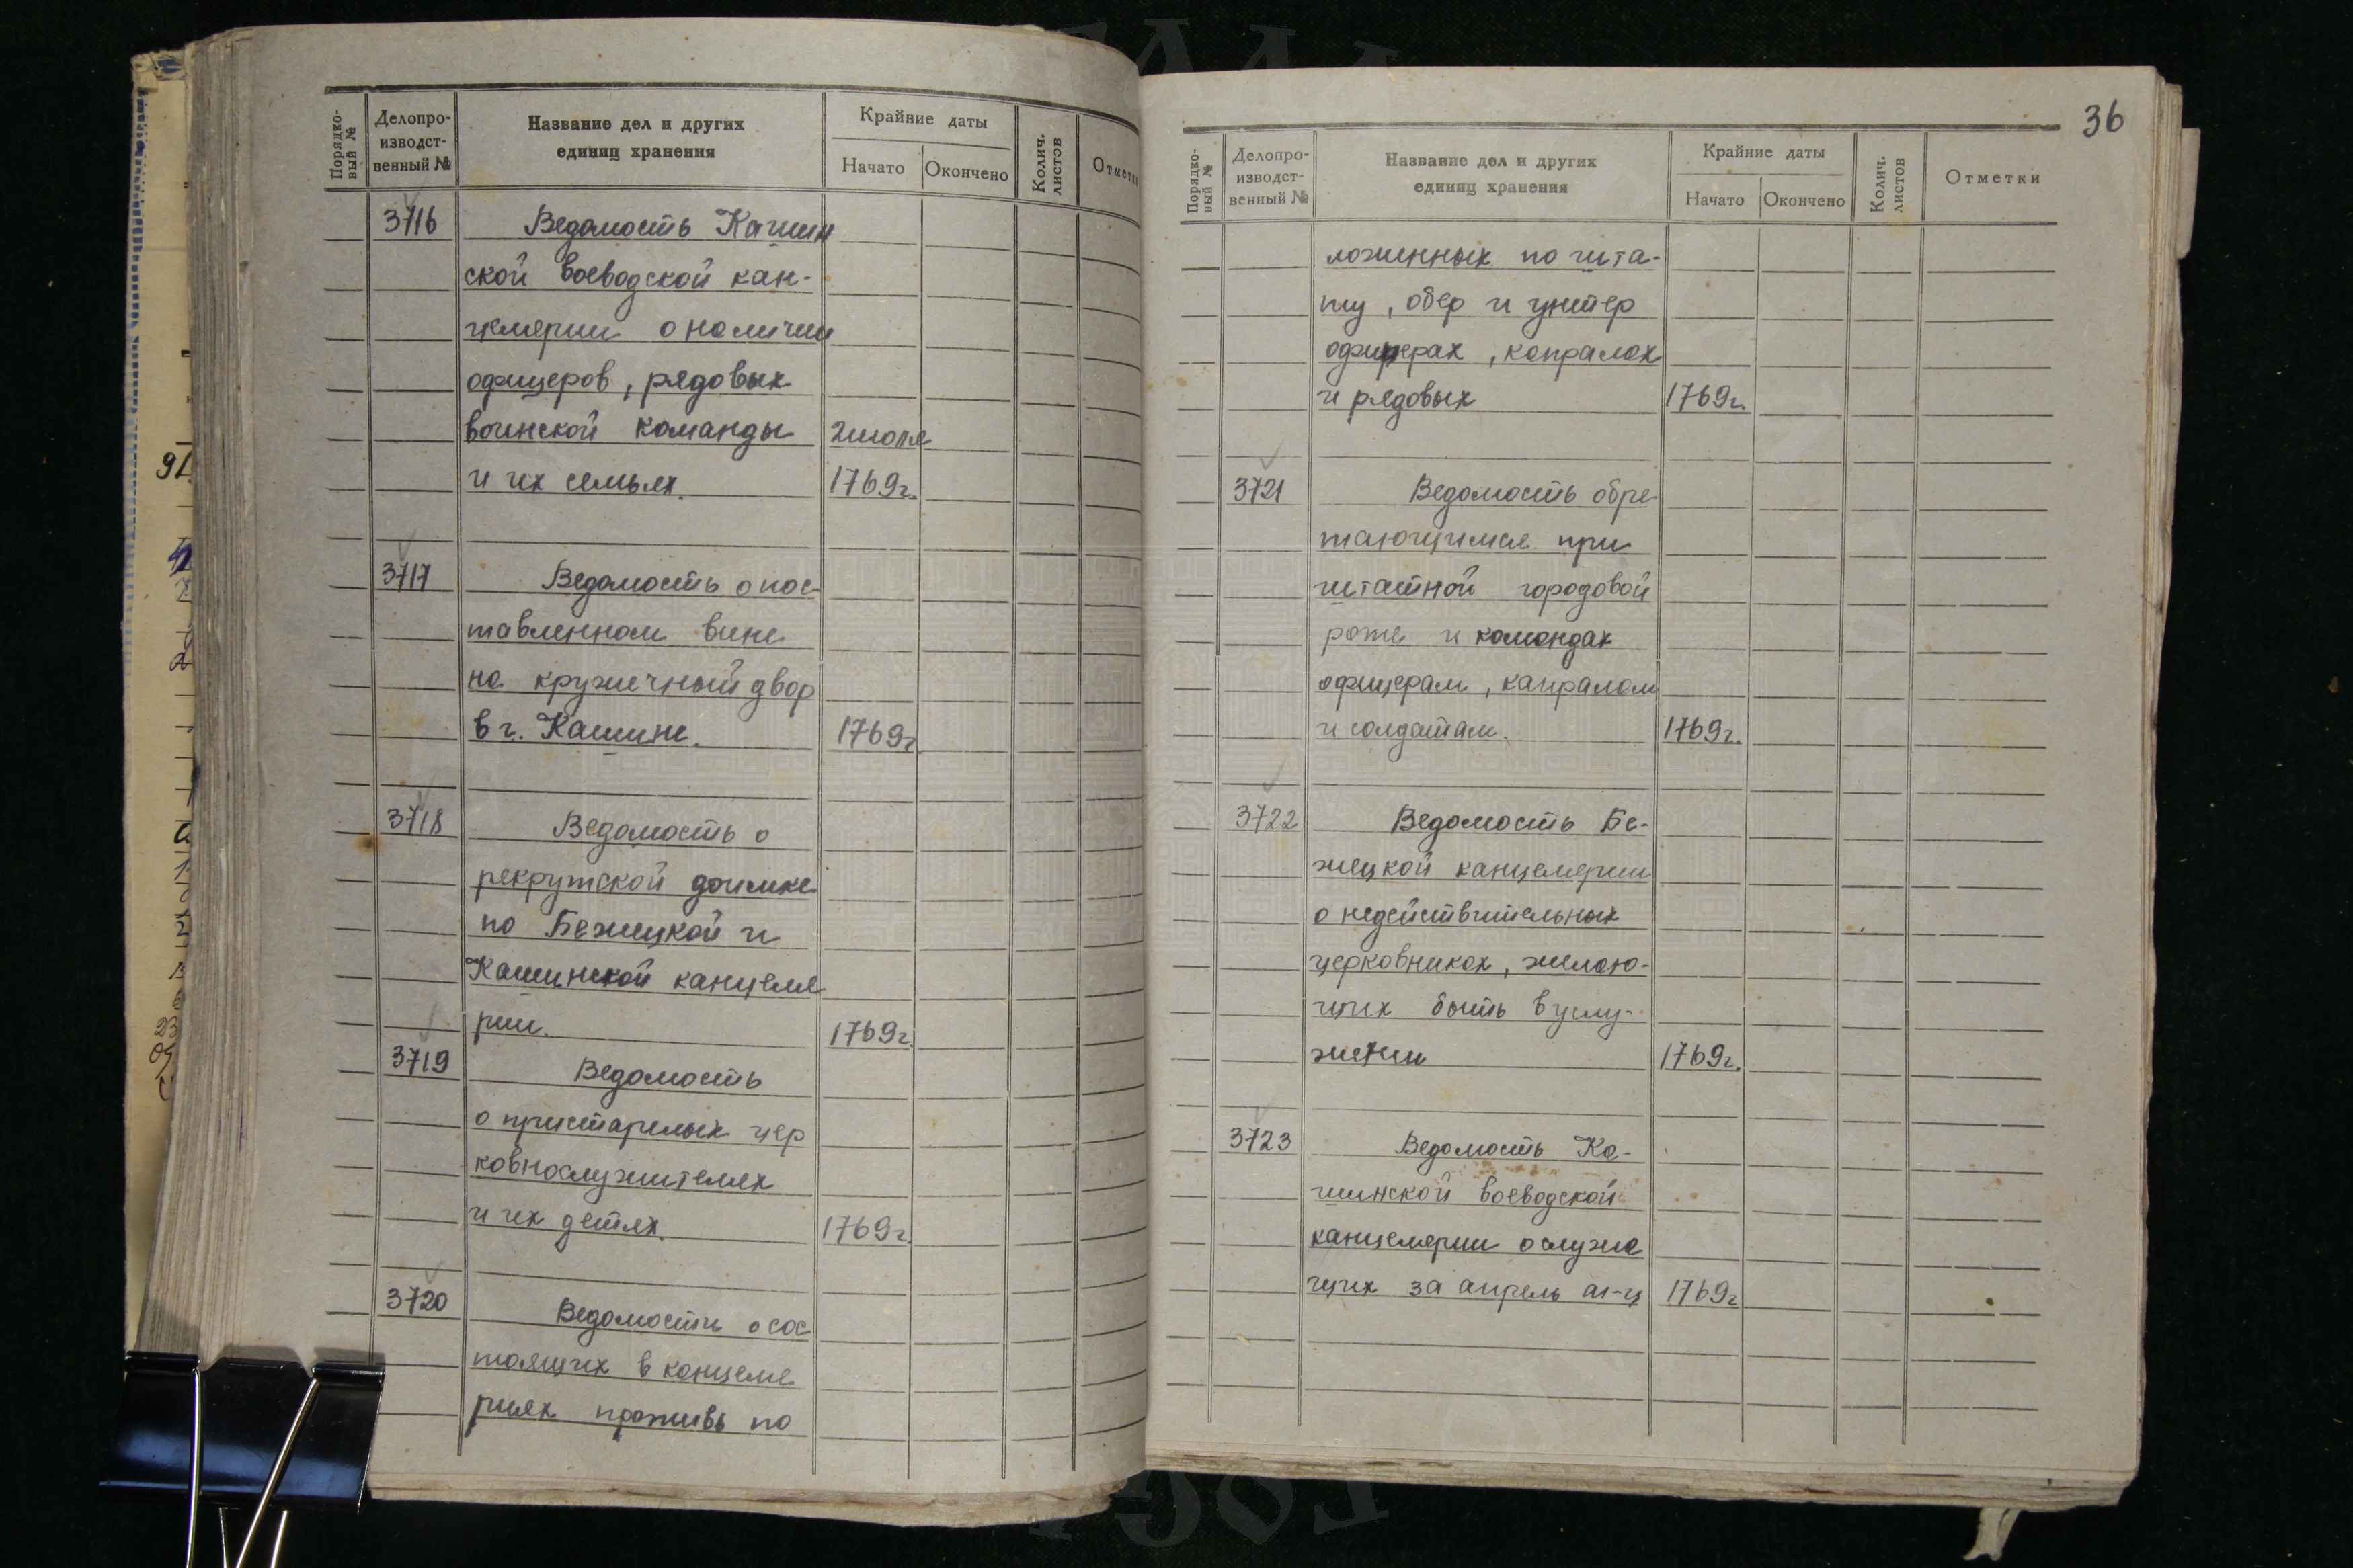 Порядко-
вый №
Делопро-
изводст-
венный №
Название дел и других
единиц хранения
Крайние даты
Начато
Окончено
Колич.
листов
Отметки
3716 Ведомость Кашин
ской воеводской кан-
целярии о наличии
офицеров, рядовых
воинской команды 2 июля
и их семьях. 1769г.
3717 Ведомость о пос
тавленном вине
на кружечный двор
в г. Кашине. 1769г
3718 Ведомость о
рекрутской доимке
по Бежецкой и
Кашинской канцеля
рии. 1769г.
3719 Ведомость
о пристарелых цер
ковнослужителях
и их детях. 1769г.
3720 Ведомость о сос
тоящих в канцеля
риях противъ по
36
Порядко-
вый №
Делопро-
изводст-
венный №
Название дел и других
единиц хранения
Крайние даты
Начато
Окончено
Колич.
листов
Отметки
ложенных по шта-
ту, обер и унтер
офицерах, капралах
и рядовых 1769г.
3721 Ведомость обре-
тающимся при
штатной городовой
роте и командах
офицерам, капралам
и солдатам. 1769г.
3722 Ведомость Бе-
жецкой канцелярии
о недействительных
церковниках, желаю-
щих быть в услу-
жении 1769г.
3723 Ведомость Ка-
шинской воеводской
канцелярии о служа
щих за апрель м-ц 1769г